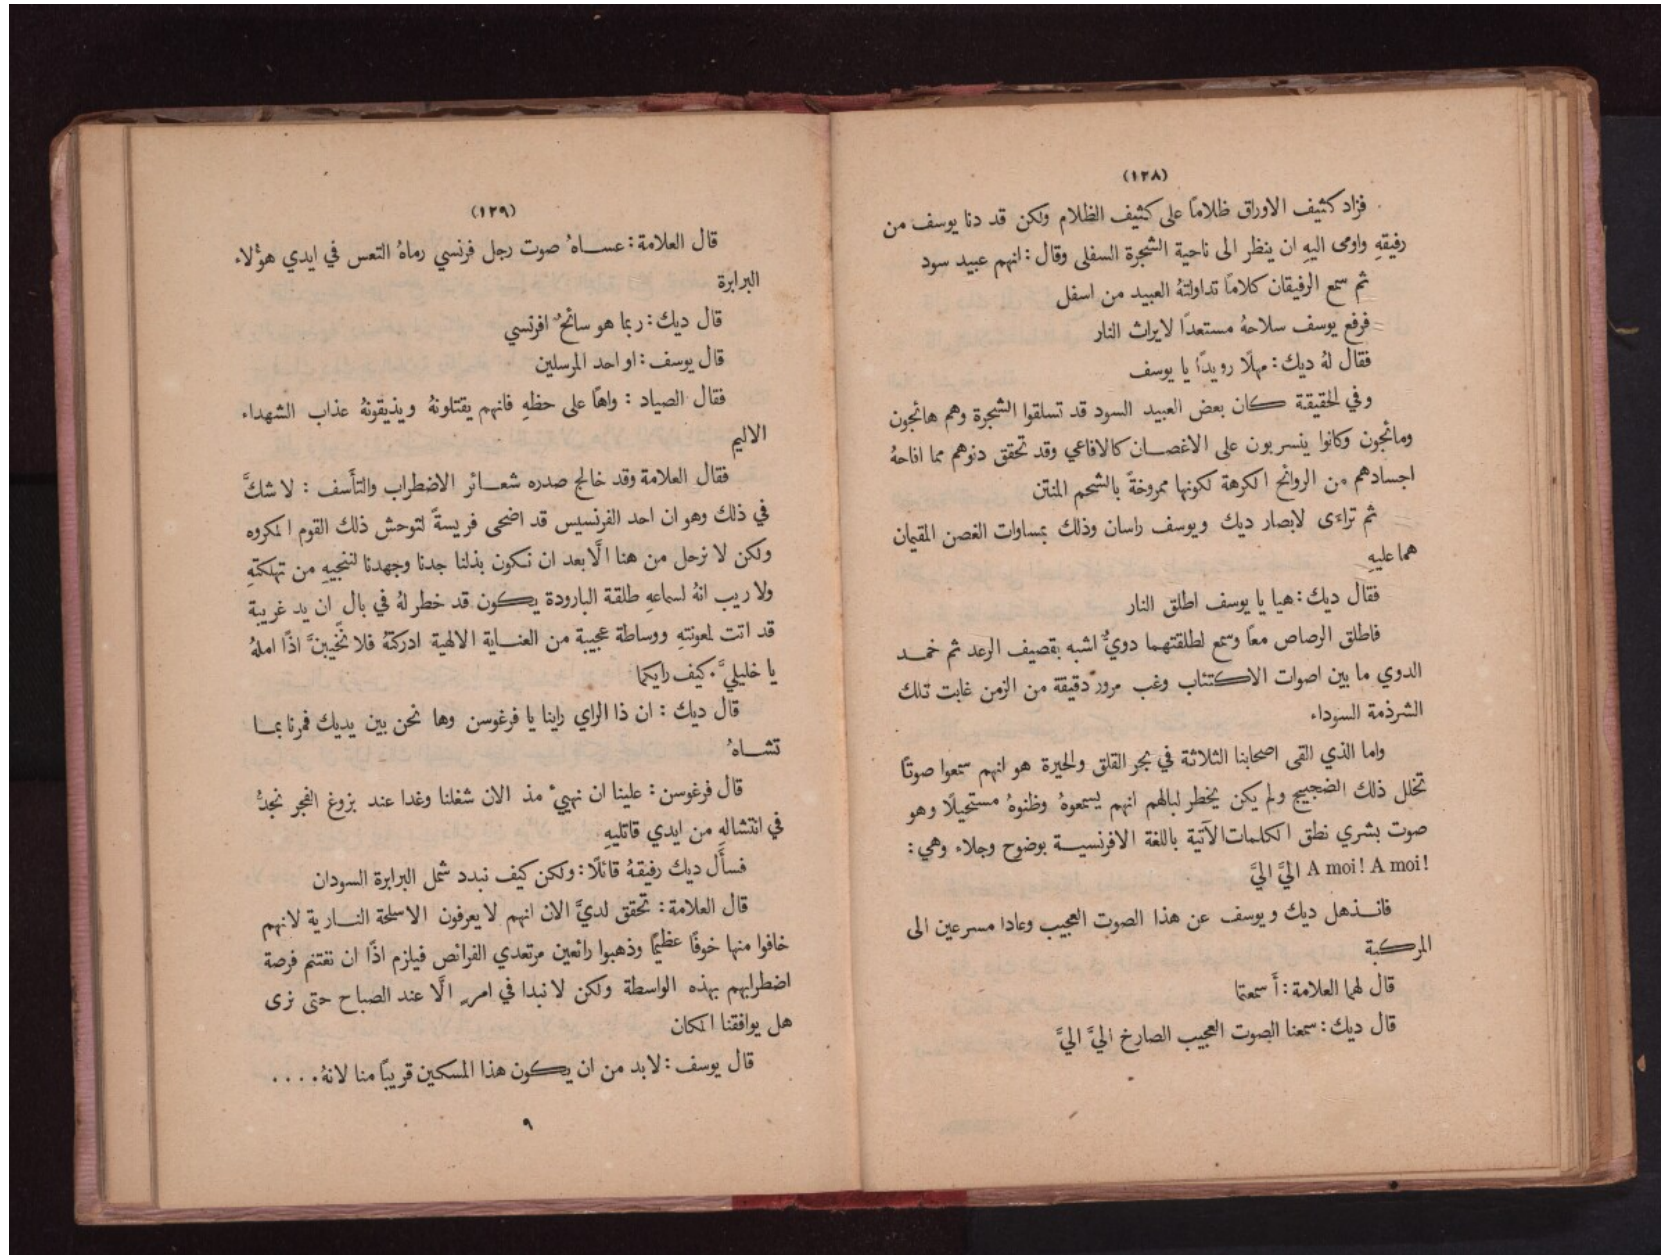 (١٢٨)
فزاد كثيف الاوراق ظلامًا على كثيف الظلام ولكن قد دنا يوسف من
رفيقهِ واومى اليهِ ان ينظر الى ناحية الشجرة السفلى وقال: انهم عبيد سود
ثم سمع الرفيقان كلامًا تداولتهُ العبيد من اسفل
فرفع يوسف سلاحهُ مستعدًا لايراث النار
فقال لهُ ديك: مهلًا رويدًا يا يوسف
وفي الحقيقة كان بعض العبيد السود قد تسلقوا الشجرة وهم هائجون
ومائجون وكانوا ينسربون على الاغصان كالافاعي وقد تحقق دنوهم مما افاحهُ
اجسادهم من الروائح الكرهة لكونها ممروخةً بالشحم المنتن
ثم تراءى لابصار ديك ويوسف راسان وذلك بمساوات الغصن المقيمان
هما عليهِ
فقال ديك: هيا يا يوسف اطلق النار
فاطلق الرصاص معًا وسمع لطلقتهما دويٌّ اشبه بقصيف الرعد ثم خمد
الدوي ما بين اصوات الاكتئاب وغب مرور دقيقة من الزمن غابت تلك
الشرذمة السوداء
واما الذي القى اصحابنا الثلاثة في بحر القلق والحيرة هو انهم سمعوا صوتًا
تخلل ذلك الضجيج ولم يكن يخطر لبالهم انهم يسمعوهُ وظنوهُ مستحيلًا وهو
صوت بشري نطق الكلمات الآتية باللغة الافرنسية بوضوح وجلاء وهي:
A moi! A moi! اليَّ اليَّ
فانذهل ديك ويوسف عن هذا الصوت العجيب وعادا مسرعين الى
المركبة
قال لهما العلامة: أَسمعتما
قال ديك: سمعنا الصوت العجيب الصارخ اليَّ اليَّ
(١٢٩)
قال العلامة: عساهُ صوت رجل فرنسي رماهُ التعس في ايدي هؤلاء
البرابرة
قال ديك: ربما هو سائحٌ افرنسي
قال يوسف: او احد المرسلين
فقال الصياد: واهًا على حظهِ فانهم يقتلونهُ ويذيقونهُ عذاب الشهداء
الاليم
فقال العلامة وقد خالج صدره شعائر الاضطراب والتأَسف: لا شكَّ
في ذلك وهو ان احد الفرنسيس قد اضحى فريسةً لتوحش ذلك القوم المكروه
ولكن لا نرحل من هنا الَّا بعد ان نكون بذلنا جدنا وجهدنا لننجيهِ من تهلكتهِ
ولا ريب انهُ لسماعهِ طلقة البارودة يكون قد خطر لهُ في بالٍ ان يد غريبة
قد اتت لمعونتهِ ووساطة عجيبة من العناية الالهية ادركتهُ فلا نخيبنَّ اذًا املهُ
يا خليليَّ. كيف رايكما
قال ديك: ان ذا الراي راينا يا فرغوسن وها نحن بين يديك فمرنا بما
تشاهُ
قال فرغوسن: علينا ان نهييَّ مذ الان شغلنا وغدا عند بزوغ الفجر نجدُّ
في انتشالهِ من ايدي قاتليهِ
فسأَل ديك رفيقهُ قائلًا: ولكن كيف نبدد شمل البرابرة السودان
قال العلامة: تحقق لديَّ الان انهم لا يعرفون الاسلحة النارية لانهم
خافوا منها خوفًا عظيمًا وذهبوا رائعين مرتعدي الفرائص فيلزم اذًا ان نغتنم فرصة
اضطرابهم بهذه الواسطة ولكن لا نبدا في امرٍ الَّا عند الصباح حتى نرى
هل يوافقنا المكان
قال يوسف: لابد من ان يكون هذا المسكين قريبًا منا لانهُ....
٩